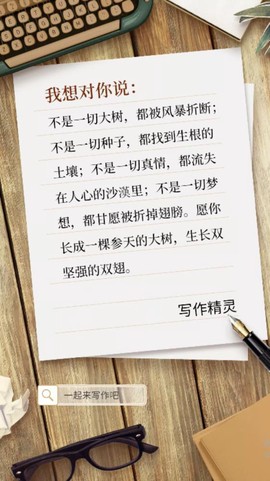 我想对你说：
不是一切大树，都被风暴折断；
不是一切种子，都找到生根的
土壤；不是一切真情，都流失
在人心的沙漠里；不是一切梦
想，都甘愿被折掉翅膀。愿你
长成一棵参天的大树，生长双
坚强的双翅。
写作精灵
一起来写作吧